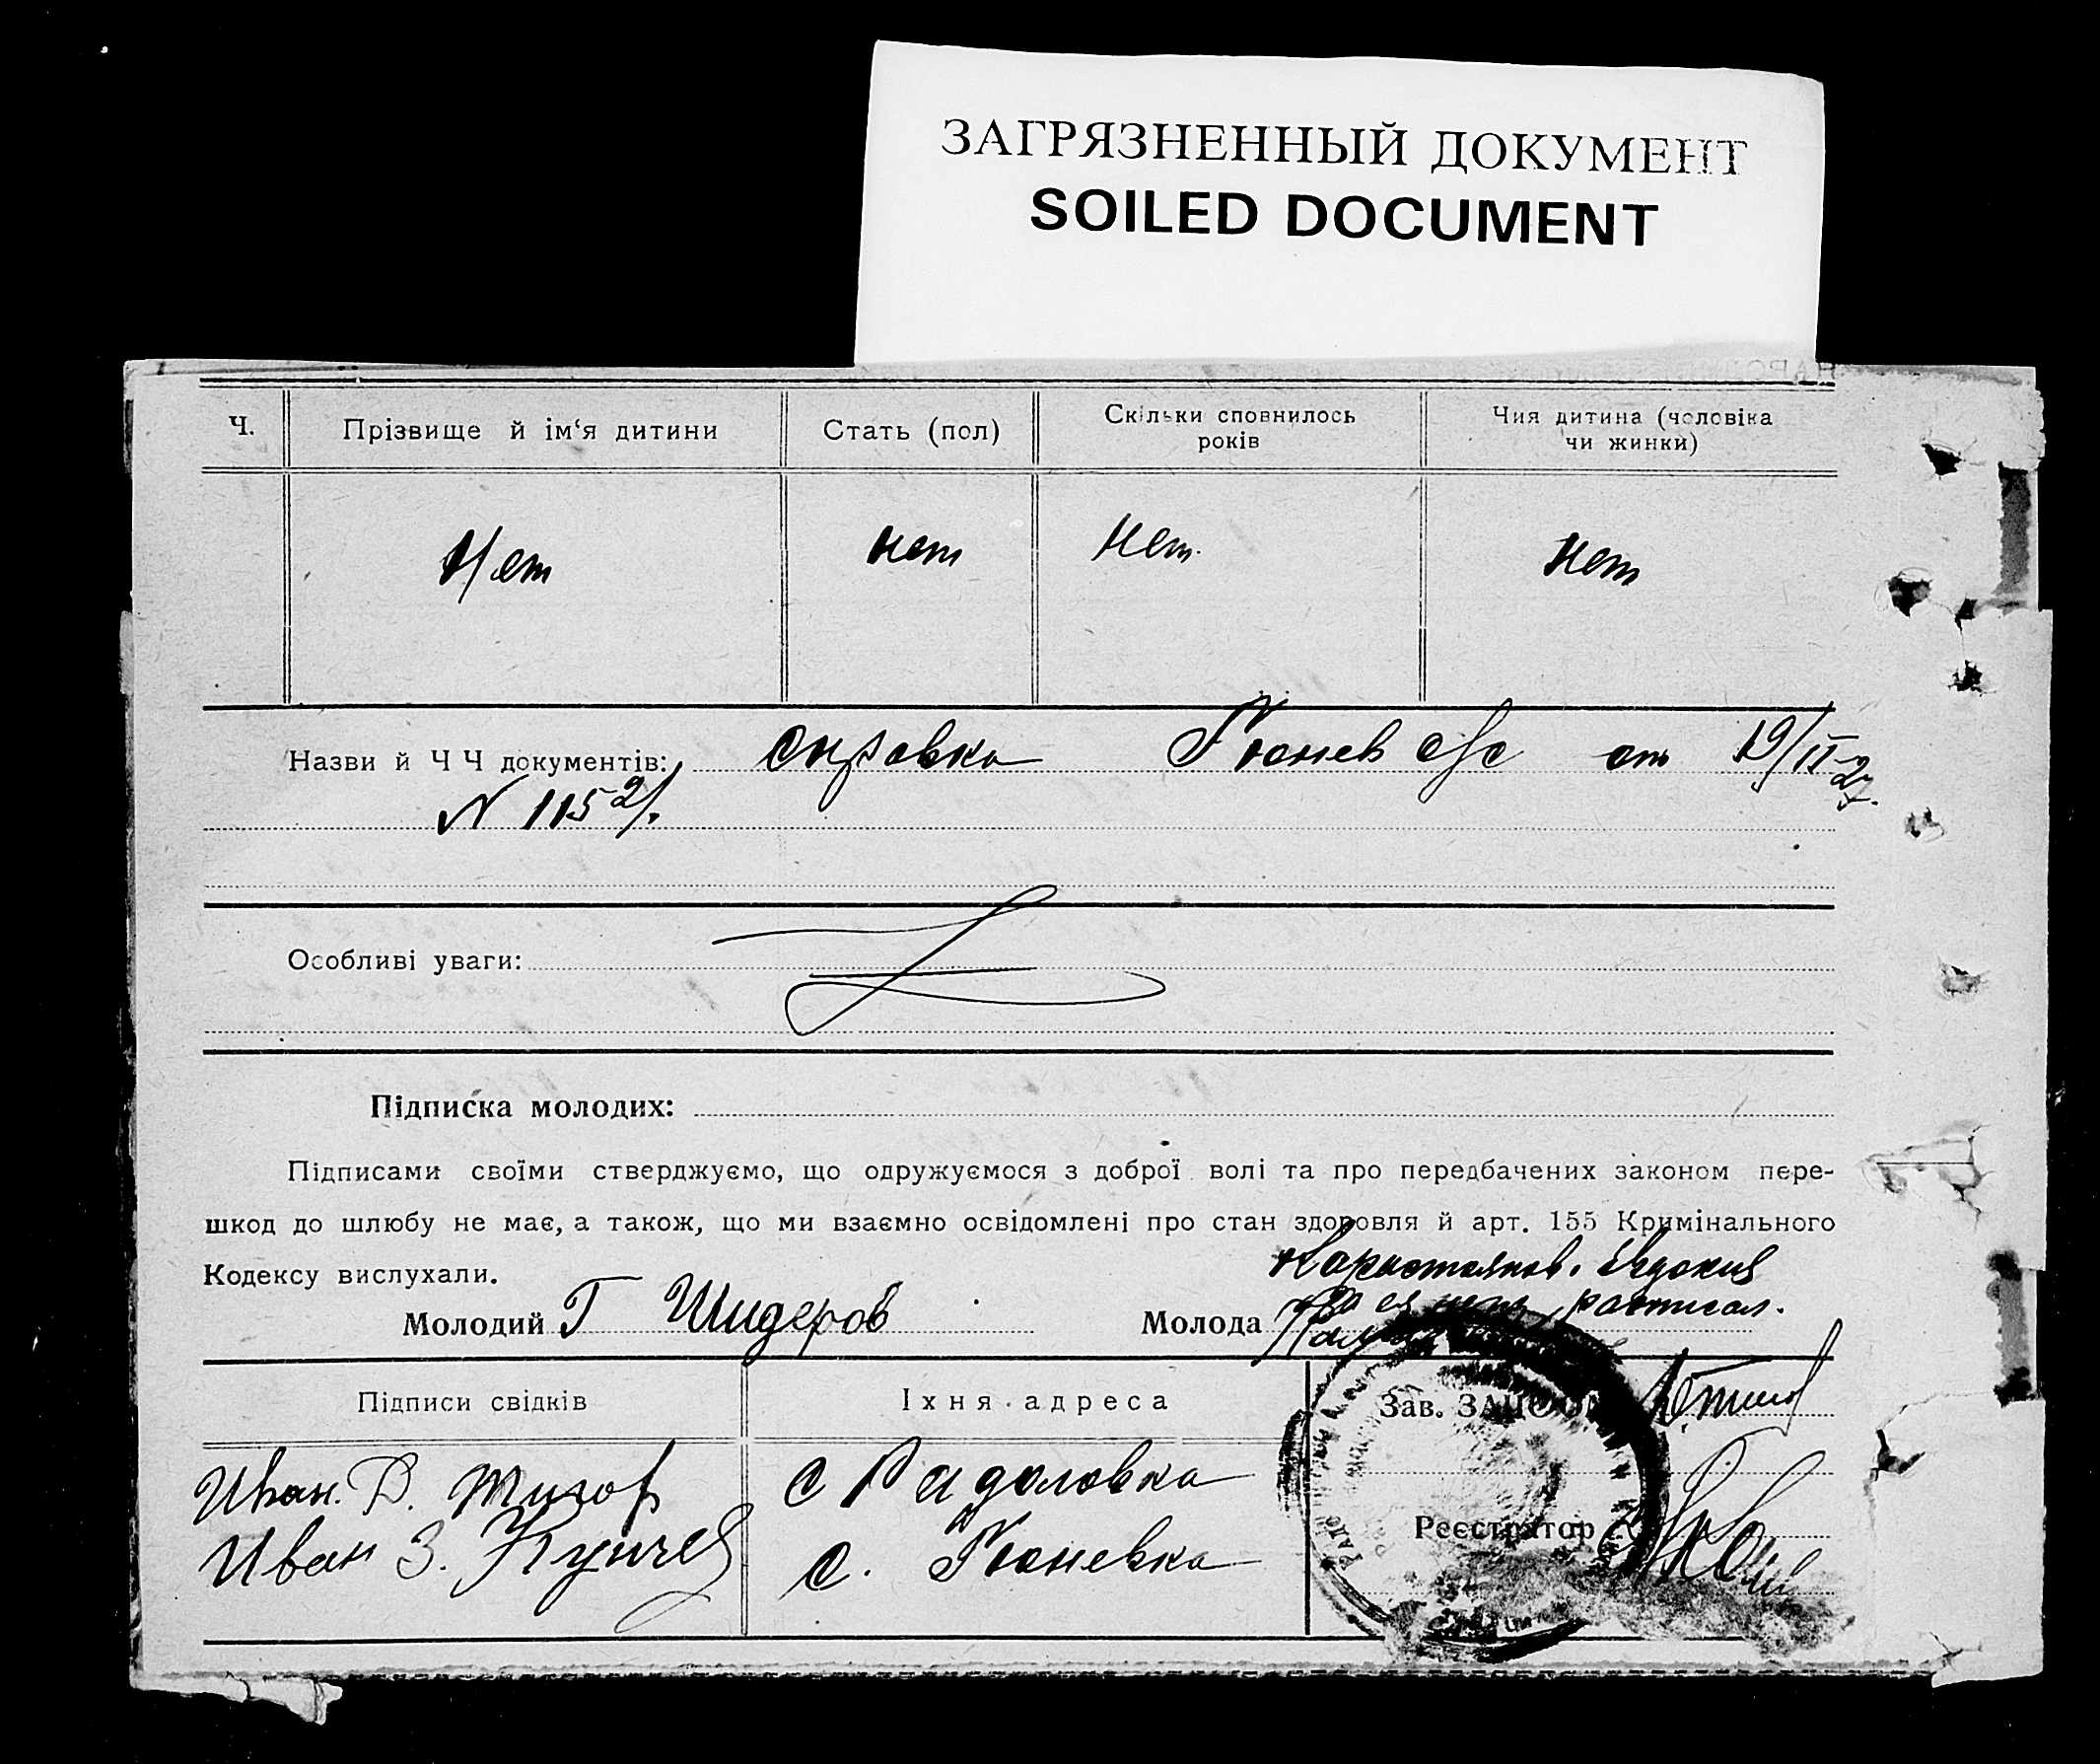 ЗАГРЯЗНЕННЫЙ ДОКУМЕНТ
SOILED DOCUMENT
Ч. Прізвище й ім‘я дитини Стать (пол) Скільки сповнилось років Чия дитина (чоловіка чи жинки)
Нет нет нет. нет
Назви й Ч Ч документів: справка Гюнев с/с от 19/II-27.
N 11521.
Особливі уваги:
Підписка молодих:
Підписами своїми стверджуємо, що одружуємося з доброї волі та про передбачених законом пере-
шкод до шлюбу не має, а також, що ми взаємно освідомлені про стан здоровля й арт. 155 Кримінального
Кодексу вислухали.
Карастоянов. Евдокия
Молодий Г Шидеров Молода расписал.
Підписи свідків Іхня адреса Зав. ЗАГСОМ
Иван. Д. с Радоловка
Иван З. с. Гюневка Реєстратор